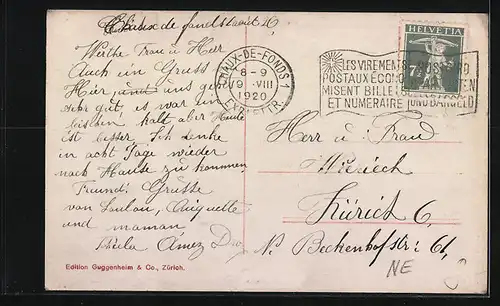 Chaux de fonds
Werthe Frau u Herr
Auch ein Gruss
Hier, uns ge
sehr gut, es war ein
bischen kalt aber Heute
ist besser Ich denke
in acht Tage wieder
nach Hause zu kommen
Freundl. Grüsse
von Loulou, Huguette
und maman
Amez Droz
Edition Guggenheim & Co., Zürich.
CHAUX-DE-FONDS 1
8-9
9.VIII
1920
EXP. LETTR.
LES VIREMENTS
POSTAUX ÉCONO
MISENT BILLETS
ET NUMÉRAIRE
UND BARGELD
HELVETIA
7½
Herr u. Frau
Zürich 6,
N. Beckenhofstr: 61,
NE